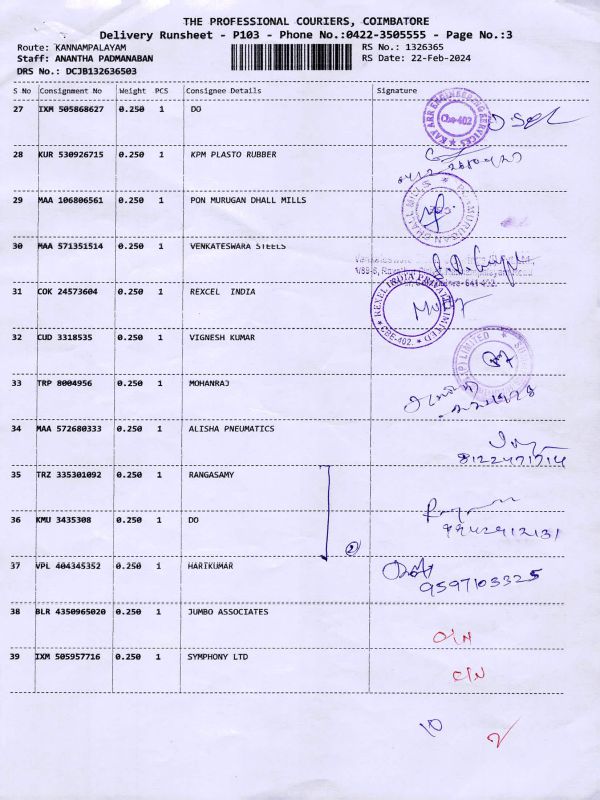 THE PROFESSIONAL COURIERS, COIMBATORE
Delivery Runsheet - P103 - Phone No.:0422-3505555 - Page No.:3
Route: KANNAMPALAYAM RS No.: 1326365
Staff: ANANTHA PADMANABAN RS Date: 22-Feb-2024
DRS No.: DCJB132636503
S No Consignment No Weight PCS Consignee Details Signature
27 IXM 505868627 0.250 1 DO
KAY ARR ENGINEERING SERVICES
Cbe-402
28 KUR 530926715 0.250 1 KPM PLASTO RUBBER
29 MAA 106806561 1 PON MURUGAN DHALL MILLS
30 MAA 571351514 0.250 1 VENKATESWARA STEELS
31 COK 24573604 0.250 1 REXCEL INDIA
REXEL INDIA PRIVATE LIMITED
CBE-402.
32 CUD 3318535 0.250 1 VIGNESH KUMAR
33 TRP 8004956 0.250 1 MOHANRAJ
34 MAA 572680333 0.250 1 ALISHA PNEUMATICS
8122471714
35 TRZ 335301092 0.250 1 RANGASAMY
36 KMU 3435308 0.250 1 DO
2
9942912131
37 VPL 404345352 0.250 1 HARIKUMAR
9597103325
38 BLR 4350965020 0.250 1 JUMBO ASSOCIATES
39 IXM 505957716 0.250 1 SYMPHONY LTD
C/N
10
2